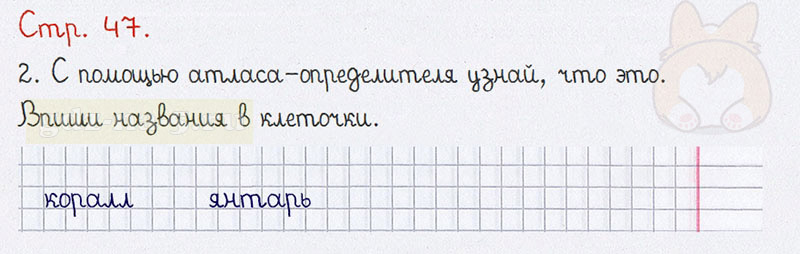 Стр. 47.
2. С помощью атласа-определителя узнай, что это.
Впиши названия в клеточки.
коралл янтарь